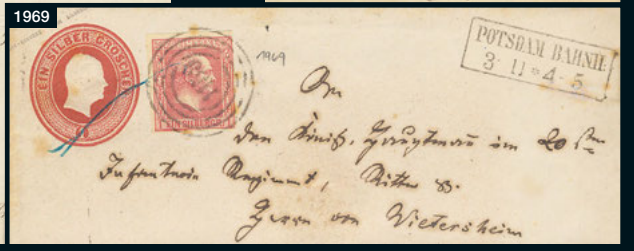 1969
EIN SILBER GROSCHEN
EIN SILBERGR.
1969
POTSDAM BAHNH:
3 11 * 4-5
An
den Königl. Hauptmann im 20 sten
Infanterie Regiment, Ritter
Herrn von Wietersheim